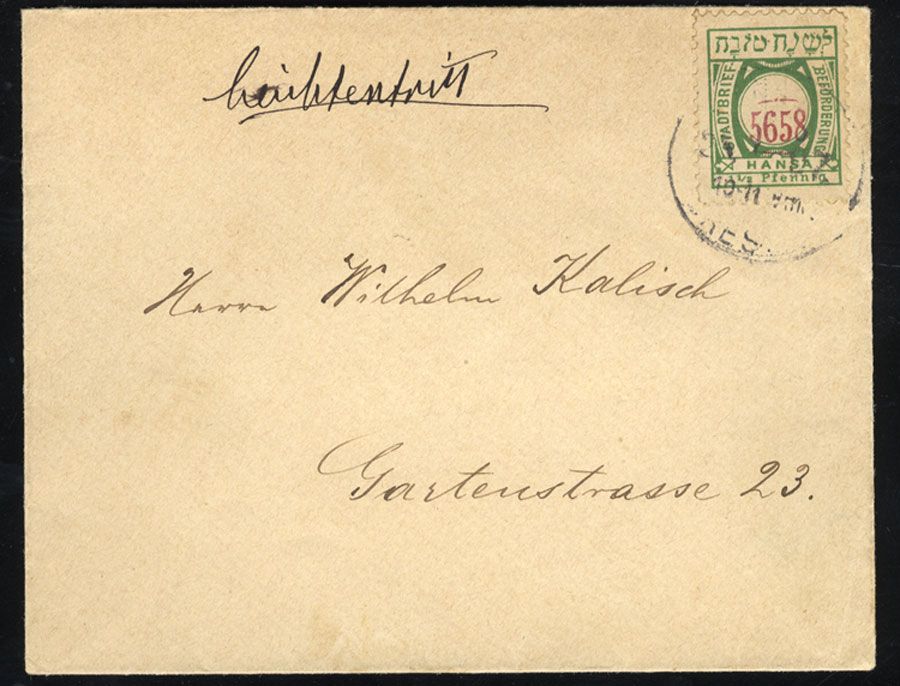 Leichtentritt
לשנה טובה
STADTBRIEF-
BEFÖRDERUNG
5658
HANSA
1½ Pfennig
10-11
Herrn Wilhelm Kalisch
Gartenstrasse 23.